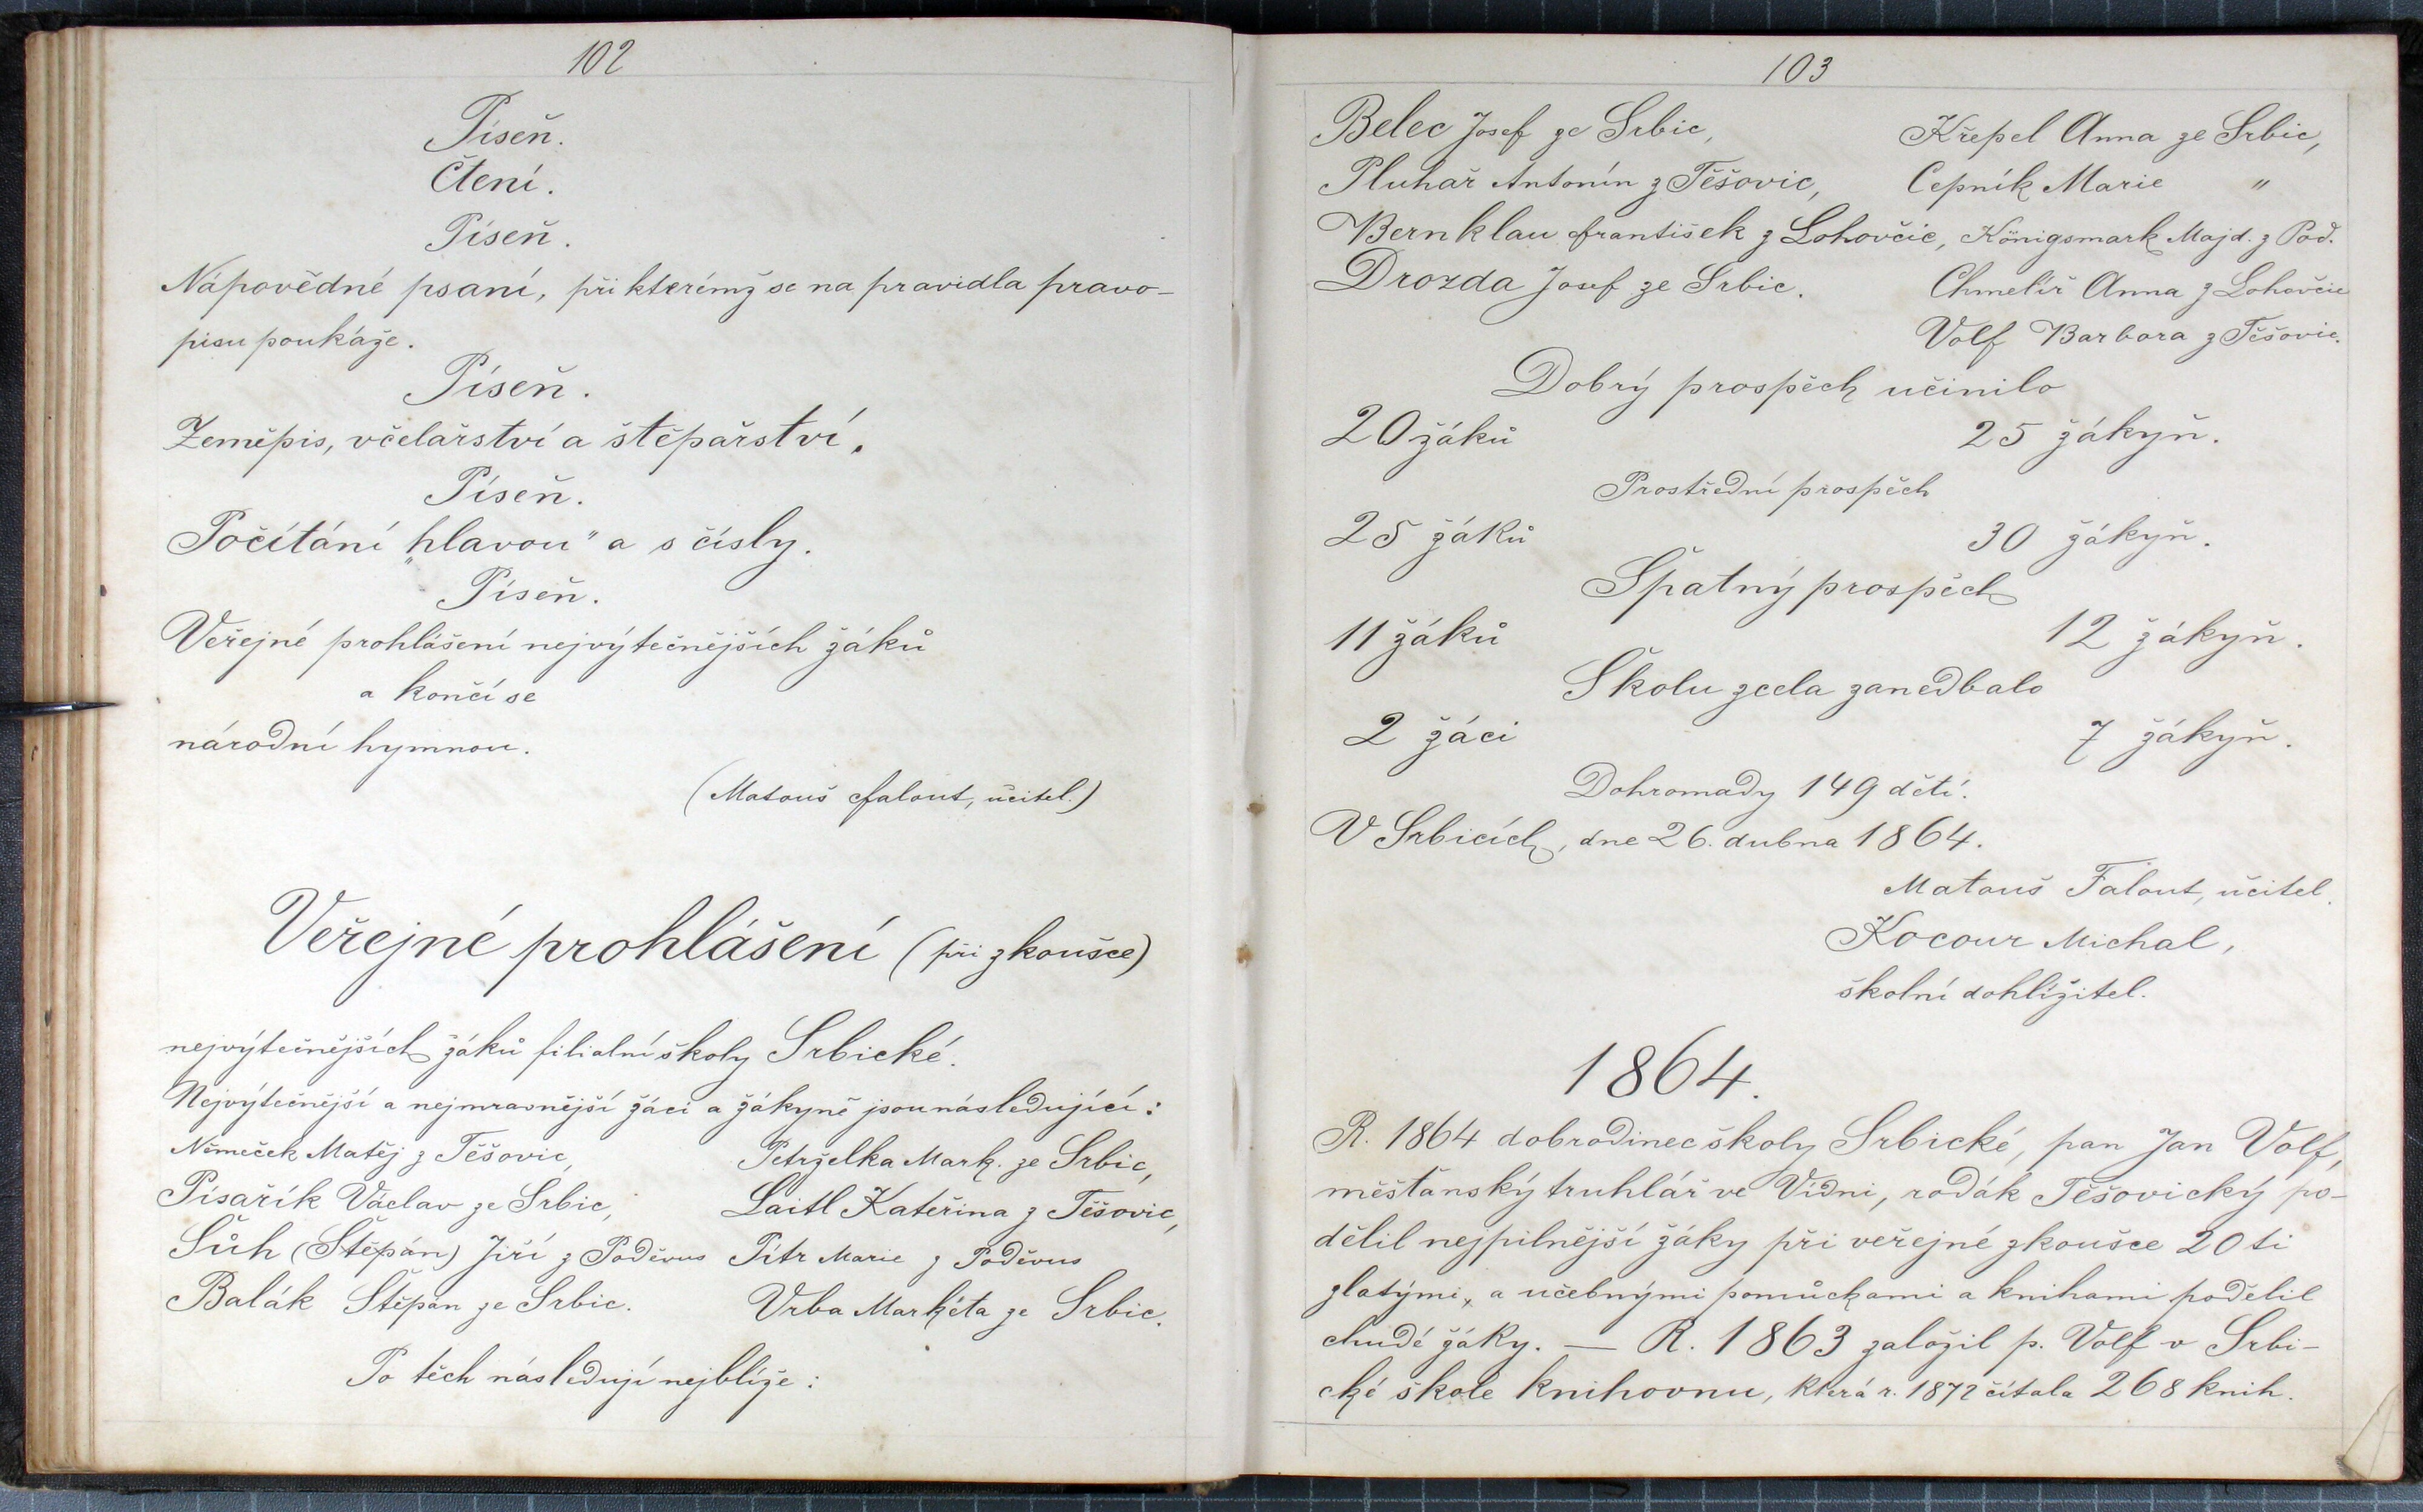 102
Píseň.
Čtení.
Píseň.
Nápovědné psaní, při kterémž se na pravidla pravo-
pisu poukáže.
Píseň.
Zeměpis, včelařství a štěpařství.
Píseň.
Počítání „hlavou" a s čísly.
Píseň.
Veřejné prohlášení nejvýtečnějších žáků
a končí se
národní hymnou.
(Matouš Falout, učitel.)
Veřejné prohlášení (při zkoušce)
nejvýtečnějších žáků filialní školy Srbické.
Nejvýtečnější a nejmravnější žáci a žákyně jsou následující:
Němeček Matěj z Těšovic, Petrželka Mark. ze Srbic,
Písařík Václav ze Srbic, Laitl Kateřina z Těšovic,
Sůh (Štěpán) Jiří z Poděvus Pitr Marie z Poděvus
Balák Štěpán ze Srbic. Vrba Markéta ze Srbic.
Po těch následují nejblíže:
103
Belec Josef ze Srbic, Křepel Anna ze Srbic,
Pluhař Antonín z Těšovic, Cepník Marie "
Bernklau František z Lohovčic, Königsmark Majd. z Pod.
Drozda Josef ze Srbic. Chmelíř Anna z Lohovčic
Volf Barbora z Těšovic.
Dobrý prospěch učinilo
20 žáků 25 žákyň.
Prostřední prospěch
25 žáků 30 žákyň.
Špatný prospěch
11 žáků 12 žákyň.
Školu zcela zanedbalo
2 žáci 7 žákyň.
Dohromady 149 dětí.
V Srbicích, dne 26. dubna 1864.
Matouš Falout, učitel.
Kocour Michal,
školní dohlížitel.
1864.
R. 1864 dobrodinec školy Srbické, pan Jan Volf,
měšťanský truhlář ve Vídni, rodák Těšovický po-
dělil nejpilnější žáky při veřejné zkoušce 20 ti
zlatými, a učebnými pomůckami a knihami podělil
chudé žáky. — R. 1863 založil p. Volf v Srbi-
cké škole knihovnu, která r. 1872 čítala 268 knih.